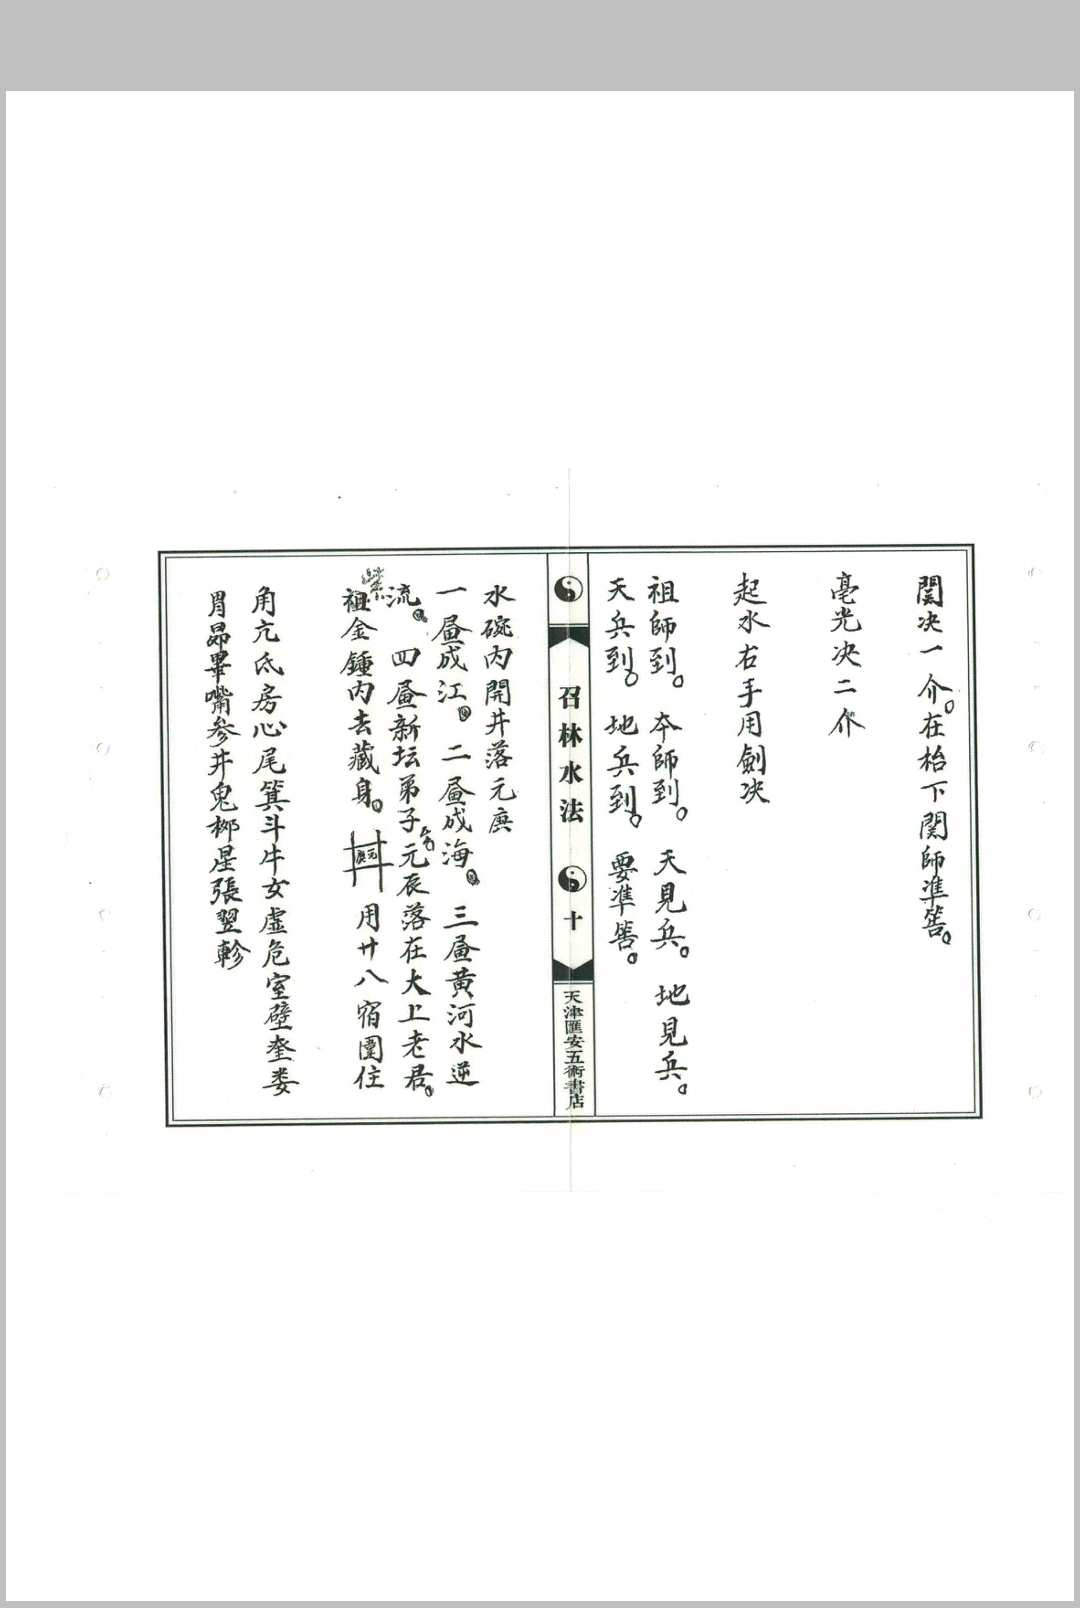 関决一介。在枱下関師準筶。
毫光决二介
起水右手用劍决
祖師到。本師到。天見兵。地見兵。
天兵到。地兵到。要準筶。
召林水法
十
天津匯安五術書店
水碗内開井落元
一 成江。二 成海。三 黄河水逆
流。四 新坛弟子 元辰落在大上老君。
祖金鍾内去藏身。 用廿八宿圍住
角亢氐房心尾箕斗牛女虚危室壁奎娄
胃昴畢嘴參井鬼柳星張翌軫